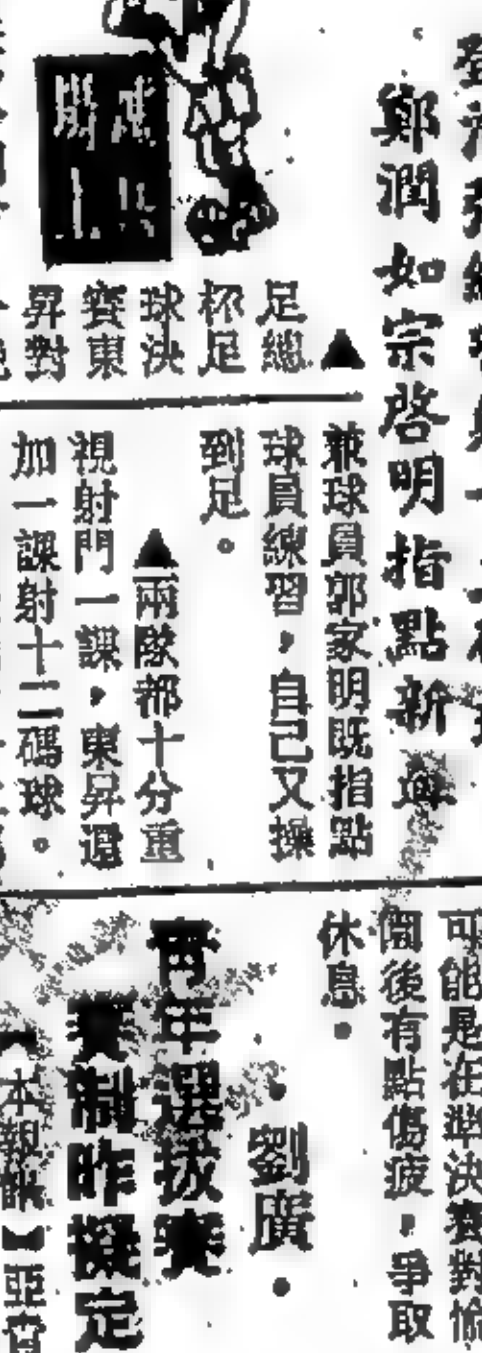 鄭潤如宗啓明指點新
▲足總
杯足
球決
賽東
昇對
兼球員郭家明既指點
球員練習，自己又操
到足。
▲兩隊都十分重
視射門一課，東昇還
加一課射十二碼球。
可能是在準決賽對愉
園後有點傷疲，爭取
休息。
•劉廣•
青年選拔賽
賽制昨擬定
【本報訊】亞青